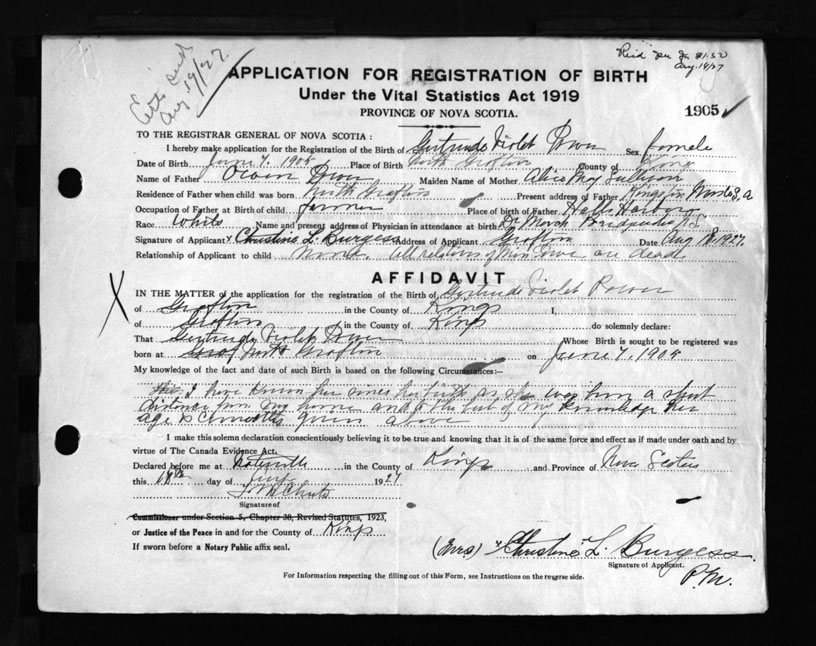 Aug 19/27.
Aug. 19/27
APPLICATION FOR REGISTRATION OF BIRTH
Under the Vital Statistics Act 1919
PROVINCE OF NOVA SCOTIA.
1905
TO THE REGISTRAR GENERAL OF NOVA SCOTIA :
I hereby make application for the Registration of the Birth of Gertrude Violet Power Sex female
Date of Birth June 7. 1905 Place of Birth North Grafton County of Kings
Name of Father Owen Power Maiden Name of Mother Alice May Sullivan
Residence of Father when child was born North Grafton Present address of Father
Occupation of Father at Birth of child farmer Place of birth of Father Halls Harbor
Race White Name and present address of Physician in attendance at birth Bridgewater N.S.
Signature of Applicant Christine L. Burgess Address of Applicant Grafton Date Aug 18. 1927.
Relationship of Applicant to child None. All relations of are dead
AFFIDAVIT
IN THE MATTER of the application for the registration of the Birth of Gertrude Violet Power
of Grafton in the County of Kings I,
of Grafton in the County of Kings do solemnly declare:
That Gertrude Violet Power Whose Birth is sought to be registered was
born at North Grafton on June 7. 1905
My knowledge of the fact and date of such Birth is based on the following Circumstances:—
I have known her since her birth as she was born a short
distance from my home and to the best of my knowledge her
age is correctly given above
I make this solemn declaration conscientiously believing it to be true and knowing that it is of the same force and effect as if made under oath and by
virtue of The Canada Evidence Act.
Declared before me at Waterville in the County of Kings and Province of Nova Scotia
this 18th day of 1927
Signature of
Commissioner under Section 5, Chapter 38, Revised Statutes, 1923,
or Justice of the Peace in and for the County of Kings
If sworn before a Notary Public affix seal.
(Mrs) "Christine" L. Burgess.
Signature of Applicant.
P.M.
For Information respecting the filling out of this Form, see Instructions on the reverse side.